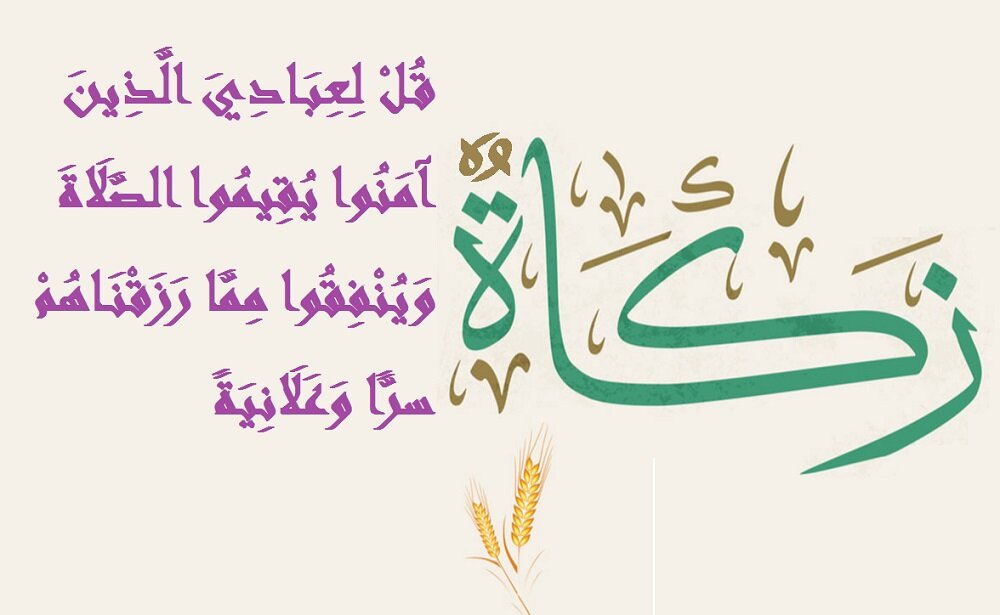 زكاة
قُلْ لِعِبَادِيَ الَّذِينَ
آمَنُوا يُقِيمُوا الصَّلَاةَ
وَيُنْفِقُوا مِمَّا رَزَقْنَاهُمْ
سرًّا وَعَلَانِيَةً